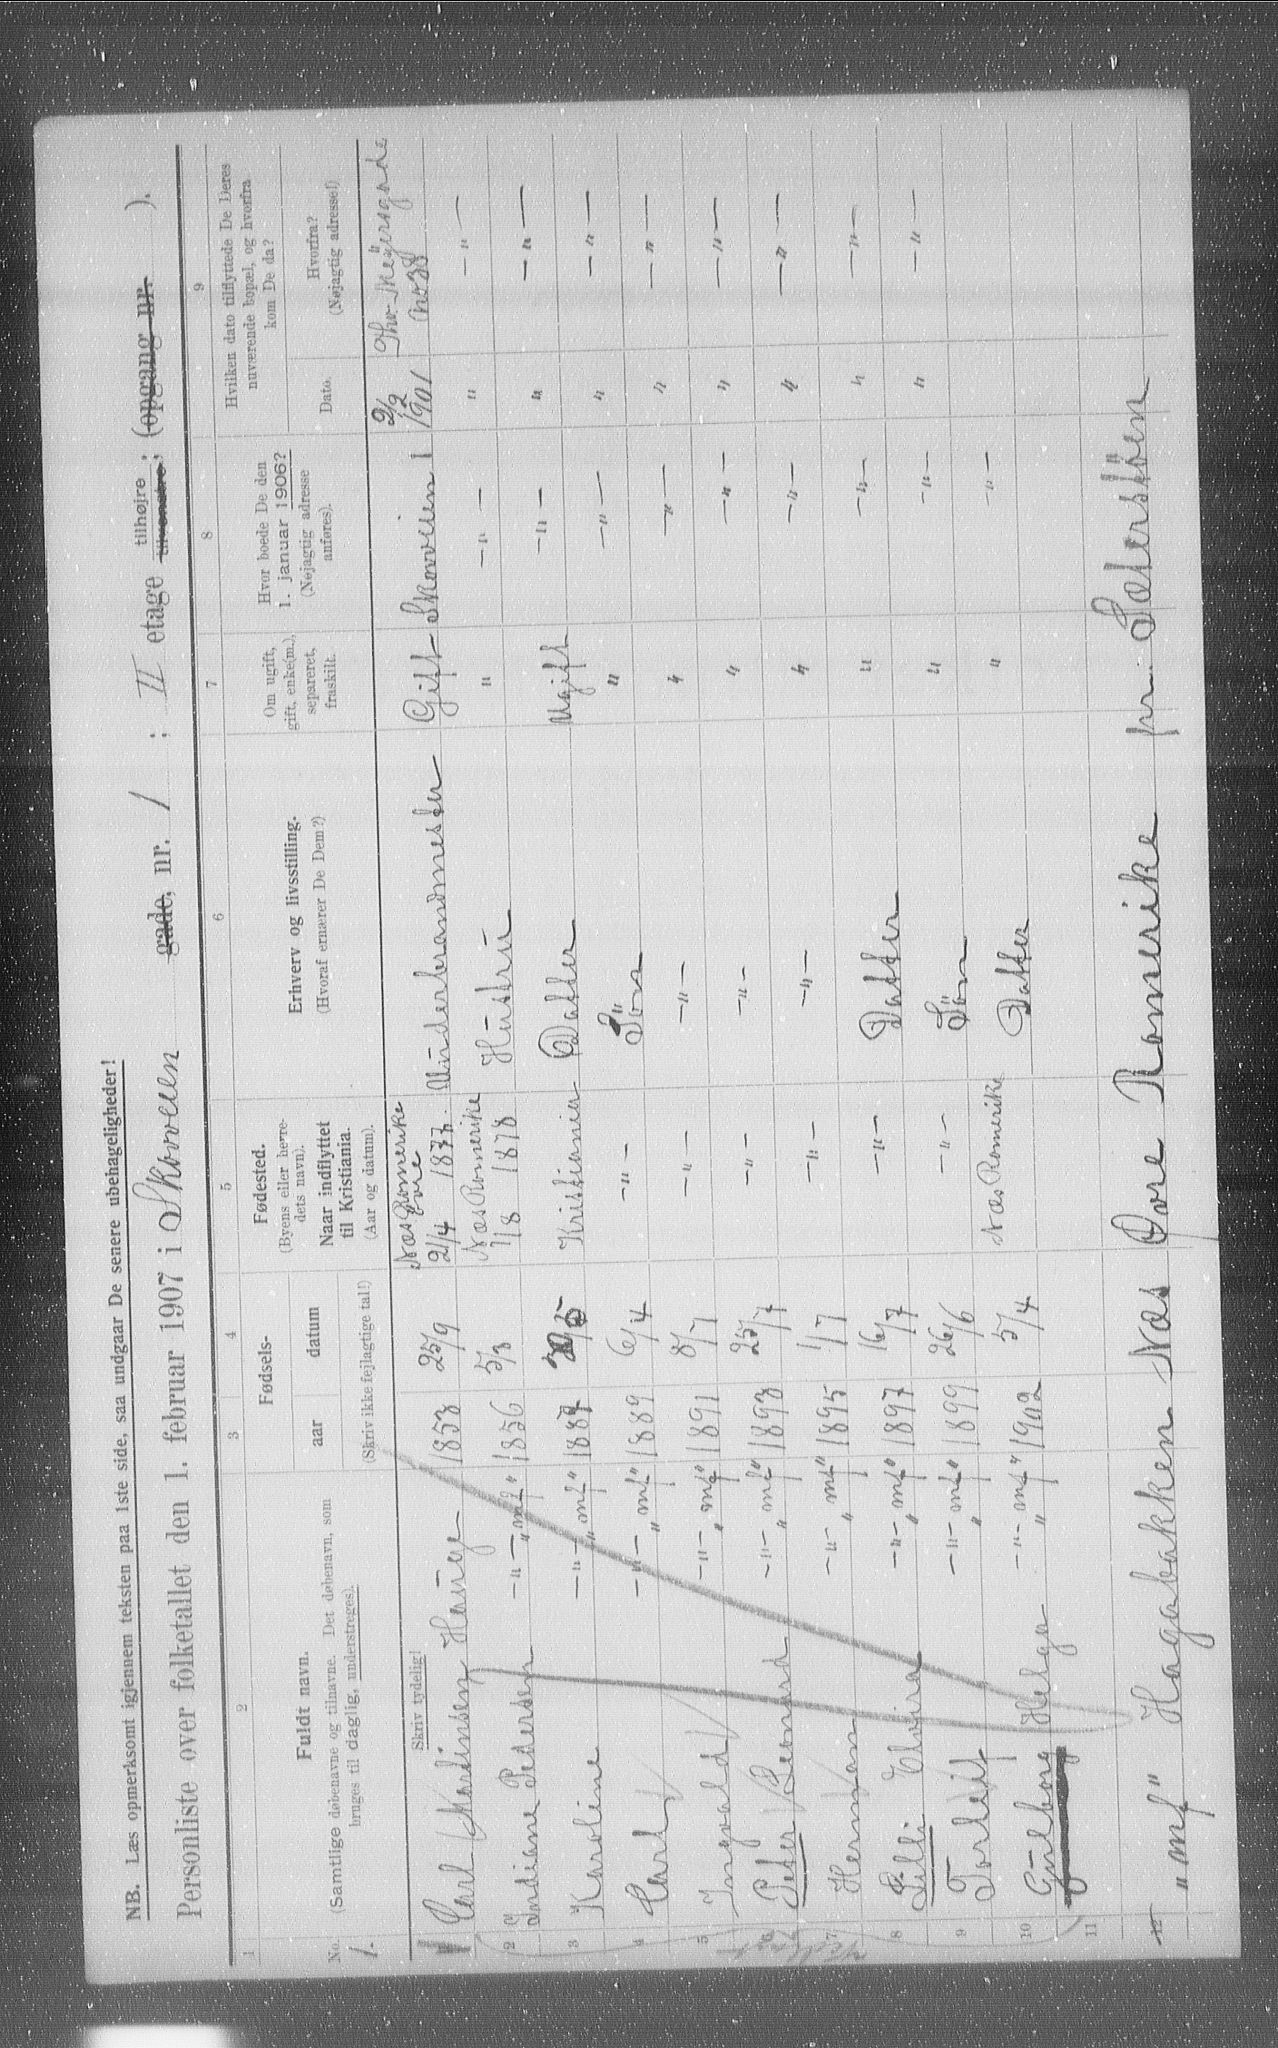 NB. Læs opmerksomt igjennem teksten paa 1ste side, saa undgaar De senere ubehageligheder!
Personliste over folketallet den 1. februar 1907 i Skovveien gade, nr. 1 ; II etage tilhøjre tilvenstre; (opgang nr. ).
1 2 3 4 5 6 7 8 9
No. 1.
Fuldt navn.
(Samtlige døbenavne og tilnavne. Det døbenavn, som
bruges til daglig, understreges).
Fødsels-
aar datum
(Skriv ikke fejlagtige tal!)
Fødested.
(Byens eller herre-
dets navn).
Naar indflyttet
til Kristiania.
(Aar og datum).
Erhverv og livsstilling.
(Hvoraf ernærer De Dem?)
Om ugift,
gift, enke(m.),
separeret,
fraskilt.
Hvor boede De den
1. januar 1906?
(Nøjagtig adresse
anføres).
Hvilken dato tilflyttede De Deres
nuværende bopæl, og hvorfra
kom De da?
Dato.
Hvorfra?
(Nøjagtig adresse!)
Skriv tydelig!
1 Carl Martinsen Hauge 1853 25/9 Næs Romerike Øvre 21/4 Underbrandmester Gift Skovveien 1 9/2 1901 Thv. Meyersgade
2 Indiane Pedersen —"— "mf" 1856 5/3 Næs Romerike 1/8 1878 Hustru " —"— " —"—
3 Karoline —"— "mf" Kristiania Datter Ugift —"— " —"—
4 Carl —"— "mf" 1889 6/4 —"— Søn " —"— " —"—
5 Ingvald —"— "mf" 1891 8/7 —"— —"— " —"— " —"—
6 Peter Leonard —"— "mf" 1893 25/7 —"— —"— " —"— " —"—
7 Herman —"— "mf" 1895 1/7 —"— —"— " —"— " —"—
8 Lilli Elvira —"— "mf" 1897 16/7 —"— Datter " —"— " —"—
9 Torleif —"— "mf" 1899 26/6 —"— Søn " —"— " —"—
10 Gulborg Helga —"— "mf" 1902 5/4 Næs Romerike Datter " —"—
11
12 "mf" Hagabakken Næs Øvre Romerike pr. Sæterstöen